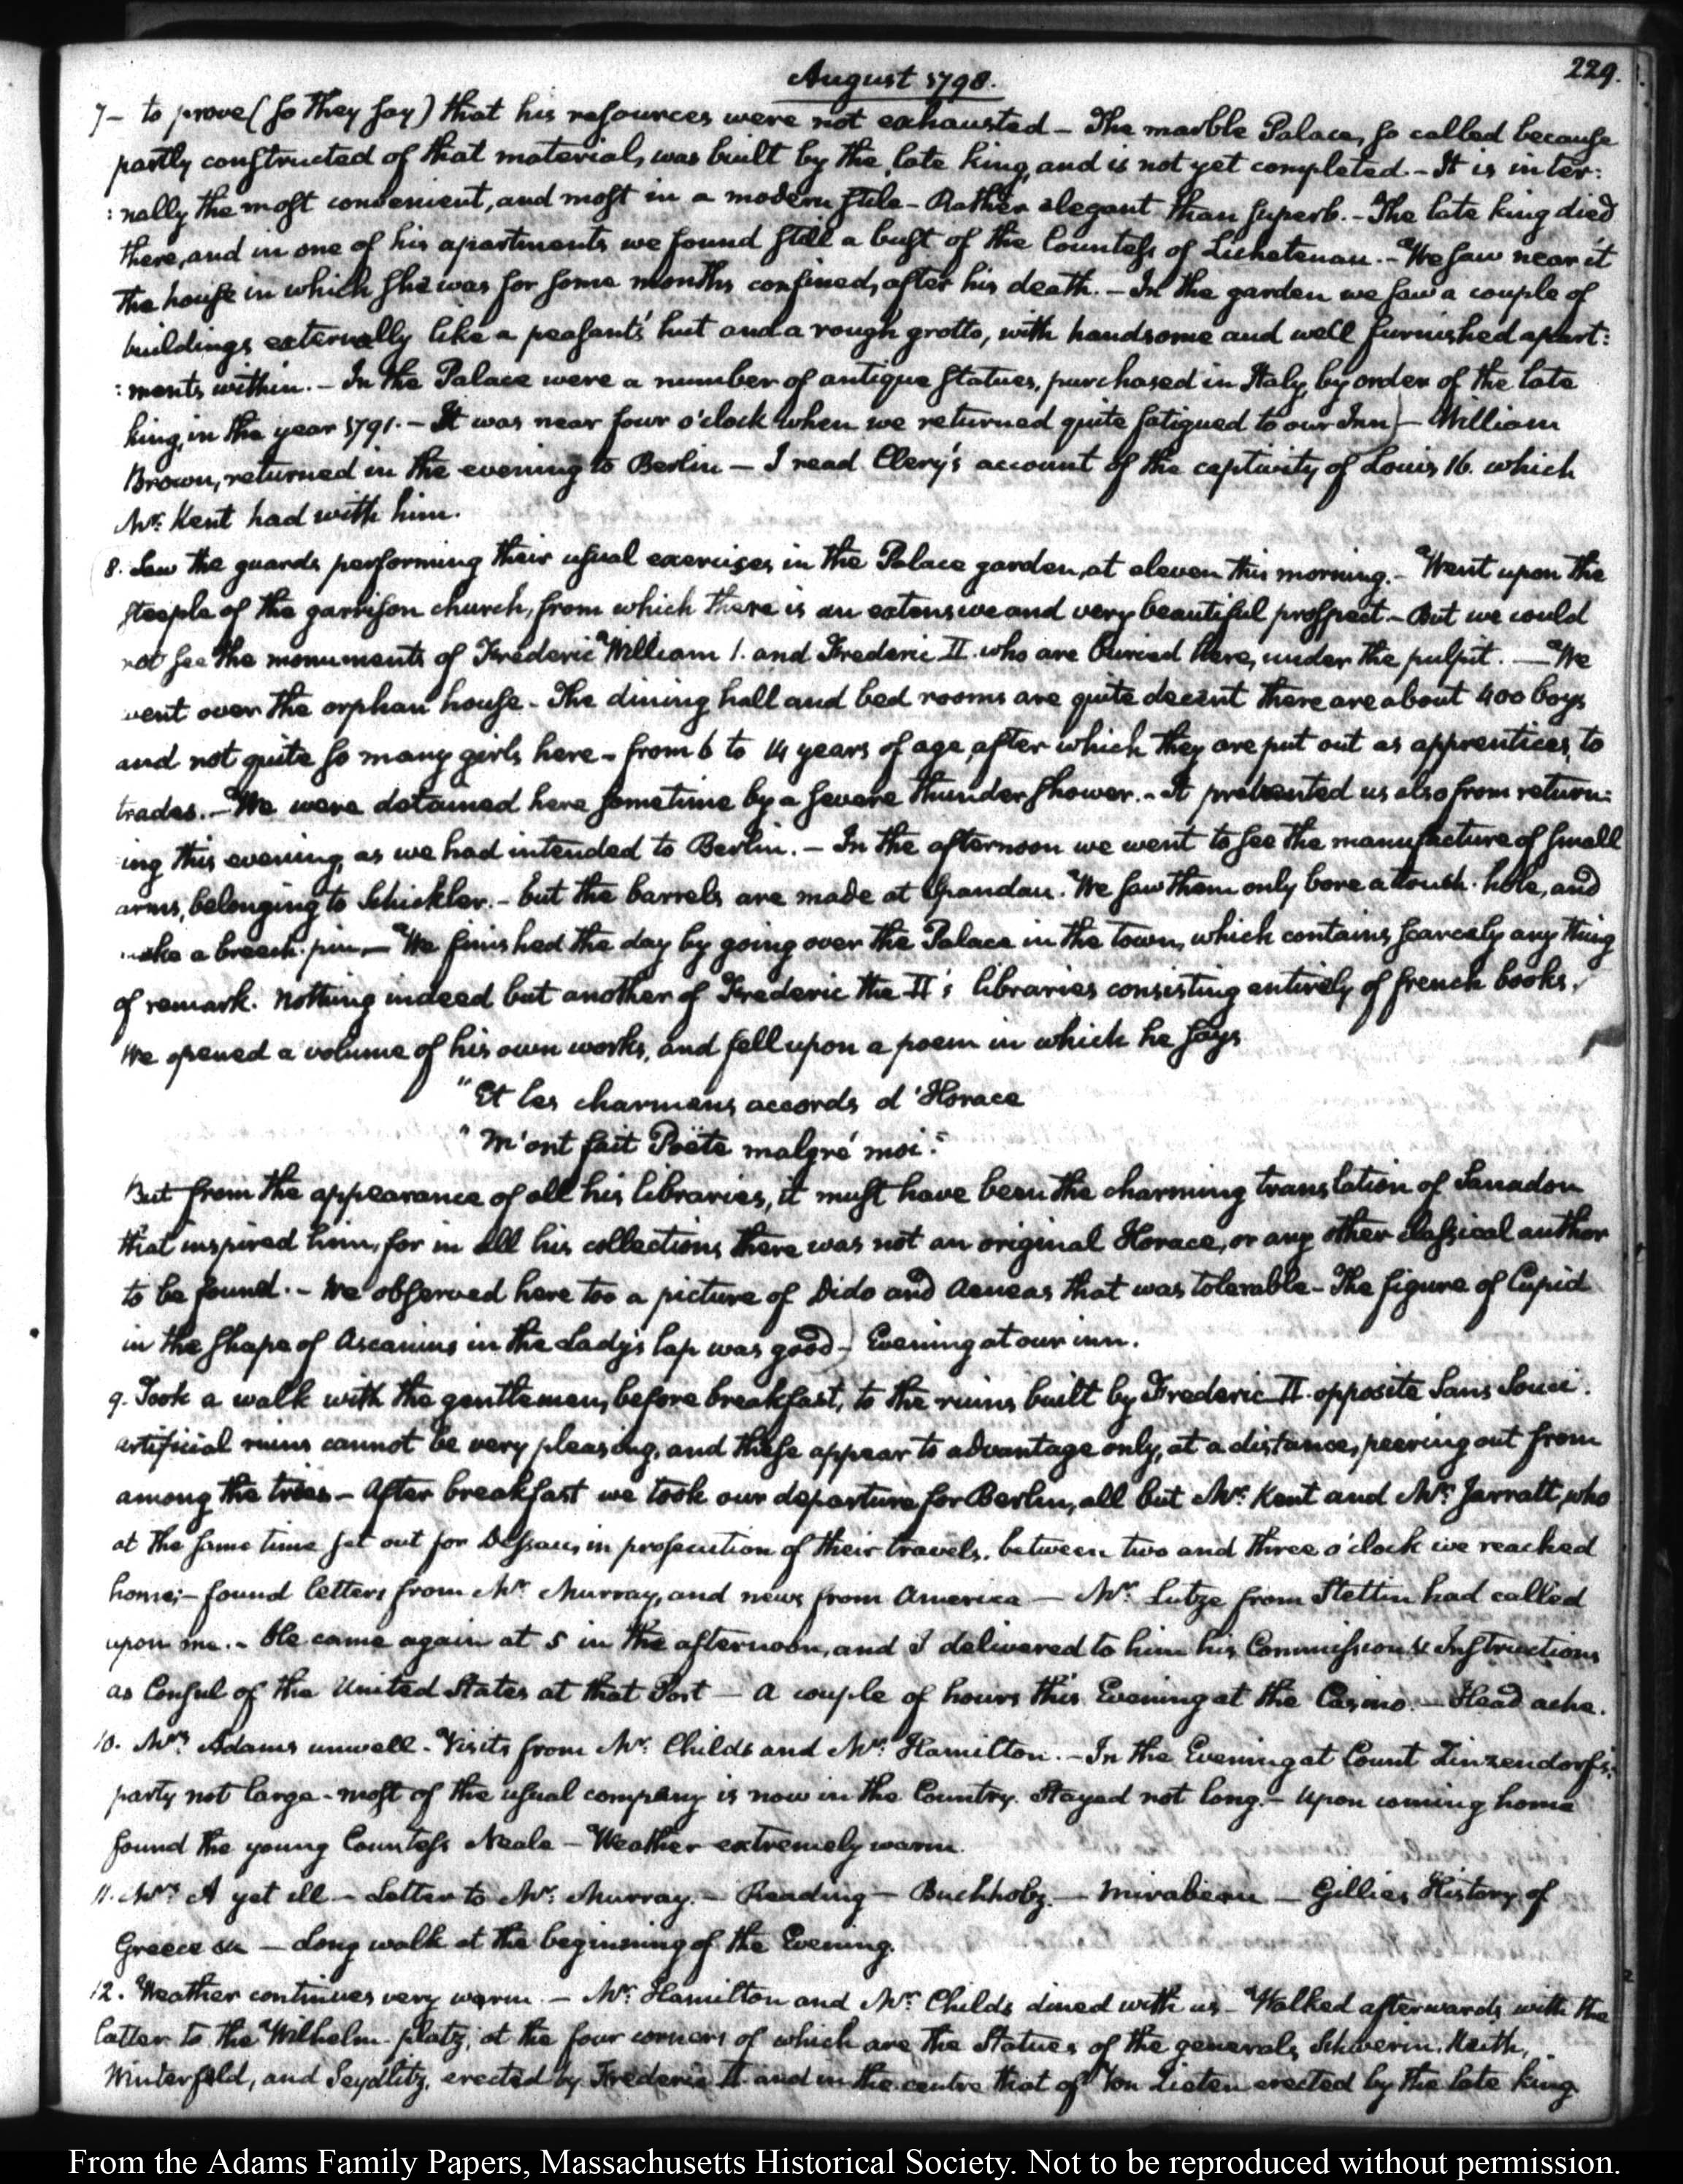 229.
August 1798.
7— to prove (so they say) that his resources were not exhausted — The marble Palace, so called because
partly constructed of that material, was built by the late king, and is not yet completed. — It is inter:
:nally the most convenient, and most in a modern stile — Rather elegant than superb. — The late king died
there, and in one of his apartments we found still a bust of the Countess of Lichetenau. — We saw near it
the house in which she was for some months confined, after his death. — In the garden we saw a couple of
buildings externally like a peasant's hut and a rough grotto, with handsome and well furnished apart:
:ments within. — In the Palace were a number of antique statues, purchased in Italy, by order of the late
king, in the year 1791. — It was near four o'clock when we returned quite fatigued to our Inn) — William
Brown, returned in the evening to Berlin — I read Clery's account of the captivity of Louis 16. which
Mr. Kent had with him.
8. Saw the guards performing their usual exercises in the Palace garden, at eleven this morning. — Went upon the
steeple of the garrison church, from which there is an extensive and very beautiful prospect. — But we could
not see the monuments of Frederic William 1. and Frederic II. who are buried there, under the pulpit. — We
went over the orphan house. — The dining hall and bed rooms are quite decent there are about 400 boys
and not quite so many girls here — from 6 to 14 years of age, after which they are put out as apprentices, to
trades. — We were detained here sometime by a severe thunder shower. — It prevented us also from return:
ing this evening, as we had intended to Berlin. — In the afternoon we went to see the manufacture of small
arms, belonging to Schickler. — but the barrels are made at Spandau. We saw them only bore a touch-hole, and
make a breech-pin. — We finished the day by going over the Palace in the town, which contains scarcely any thing
of remark. nothing indeed but another of Frederic the II's libraries consisting entirely of french books.
We opened a volume of his own works, and fell upon a poem in which he says
"Et les charmans accords d'Horace
"M'ont fait Poëte malgré moi."
But from the appearance of all his libraries, it must have been the charming translation of Sanadon
that inspired him, for in all his collections there was not an original Horace, or any other classical author
to be found. — We observed here too a picture of Dido and Aeneas that was tolerable — The figure of Cupid
in the shape of Ascanius in the Lady's lap was good) Evening at our inn.
9. Took a walk with the gentlemen, before breakfast, to the ruins built by Frederic II. opposite Sans Souci.
artificial ruins cannot be very pleasing, and these appear to advantage only, at a distance, peering out from
among the trees — After breakfast we took our departure for Berlin, all but Mr. Kent and Mr. Jarratt, who
at the same time set out for Dessau, in prosecution of their travels. between two and three o'clock we reached
home; — found letters from Mr. Murray, and news from America — Mr. Lutze from Stettin had called
upon me. — He came again at 5 in the afternoon, and I delivered to him his Commission & Instructions
as Consul of the United States at that Port — A couple of hours this Evening at the Casino. — Head ache.
10. Mrs. Adams unwell. Visits from Mr. Childs and Mr. Hamilton. — In the Evening at Count Zinzendorf's:
party not large — most of the usual company is now in the Country. Stayed not long. — Upon coming home
found the young Countess Neale — Weather extremely warm.
11. Mrs. A yet ill — Letter to Mr. Murray. — Reading — Buchholz. — Mirabeau — Gillies History of
Greece &c — Long walk at the beginning of the Evening.
12. Weather continues very warm. — Mr. Hamilton and Mr. Childs dined with us — Walked afterwards with the
latter to the Wilhelm-platz, at the four corners of which are the Statues of the generals Schwerin, Keith,
Winterfeld, and Seydlitz, erected by Frederic II. and in the centre that of Von Zieten erected by the late king.
From the Adams Family Papers, Massachusetts Historical Society. Not to be reproduced without permission.